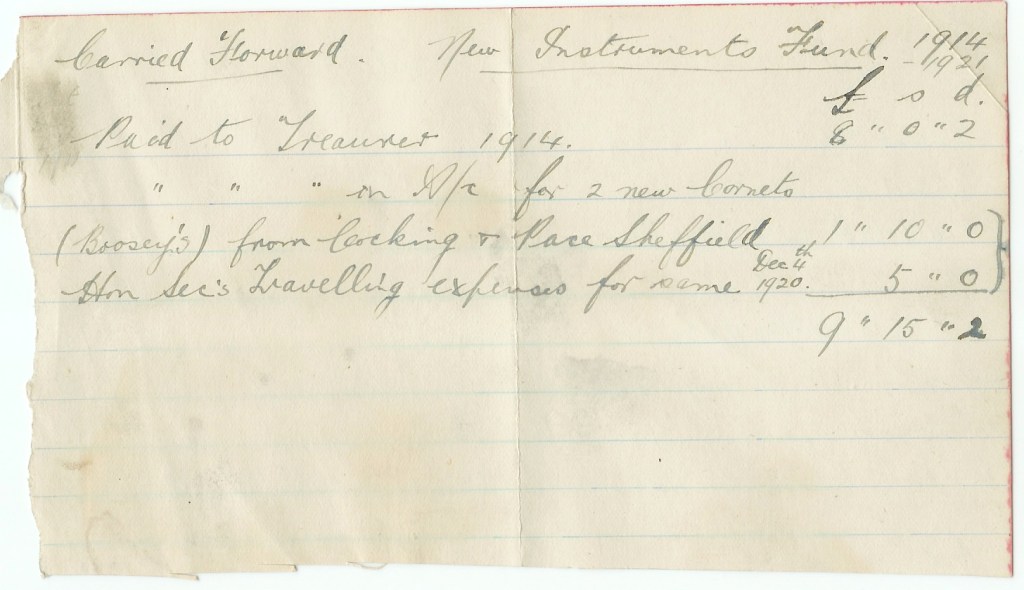 Carried Forward. New Instruments Fund. 1914
- 1921
£ s d.
Paid to Treaurer 1914. 8 " 0 " 2
" " " in A/c for 2 new Cornets
(Boosey's) from Cocking & Pace Sheffield 1 " 10 " 0
Hon Sec's Travelling expenses for same Dec 4th 1920. 5 " 0
9 " 15 " 2